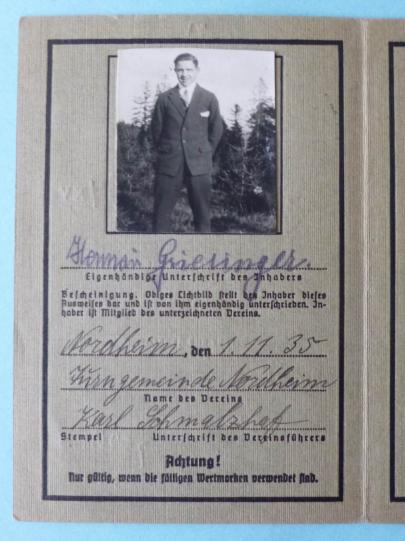 Hermann Griesinger.
Eigenhändige Unterschrift des Inhabers
Bescheinigung. Obiges Lichtbild stellt den Inhaber dieses
Ausweises dar und ist von ihm eigenhändig unterschrieben. In-
haber ist Mitglied des unterzeichneten Vereins.
Nordheim, den 1. 11. 35
Turngemeinde Nordheim
Name des Vereins
Karl Schmalzhaf
Stempel Unterschrift des Vereinsführers
Achtung!
Nur gültig, wenn die fälligen Wertmarken verwendet sind.